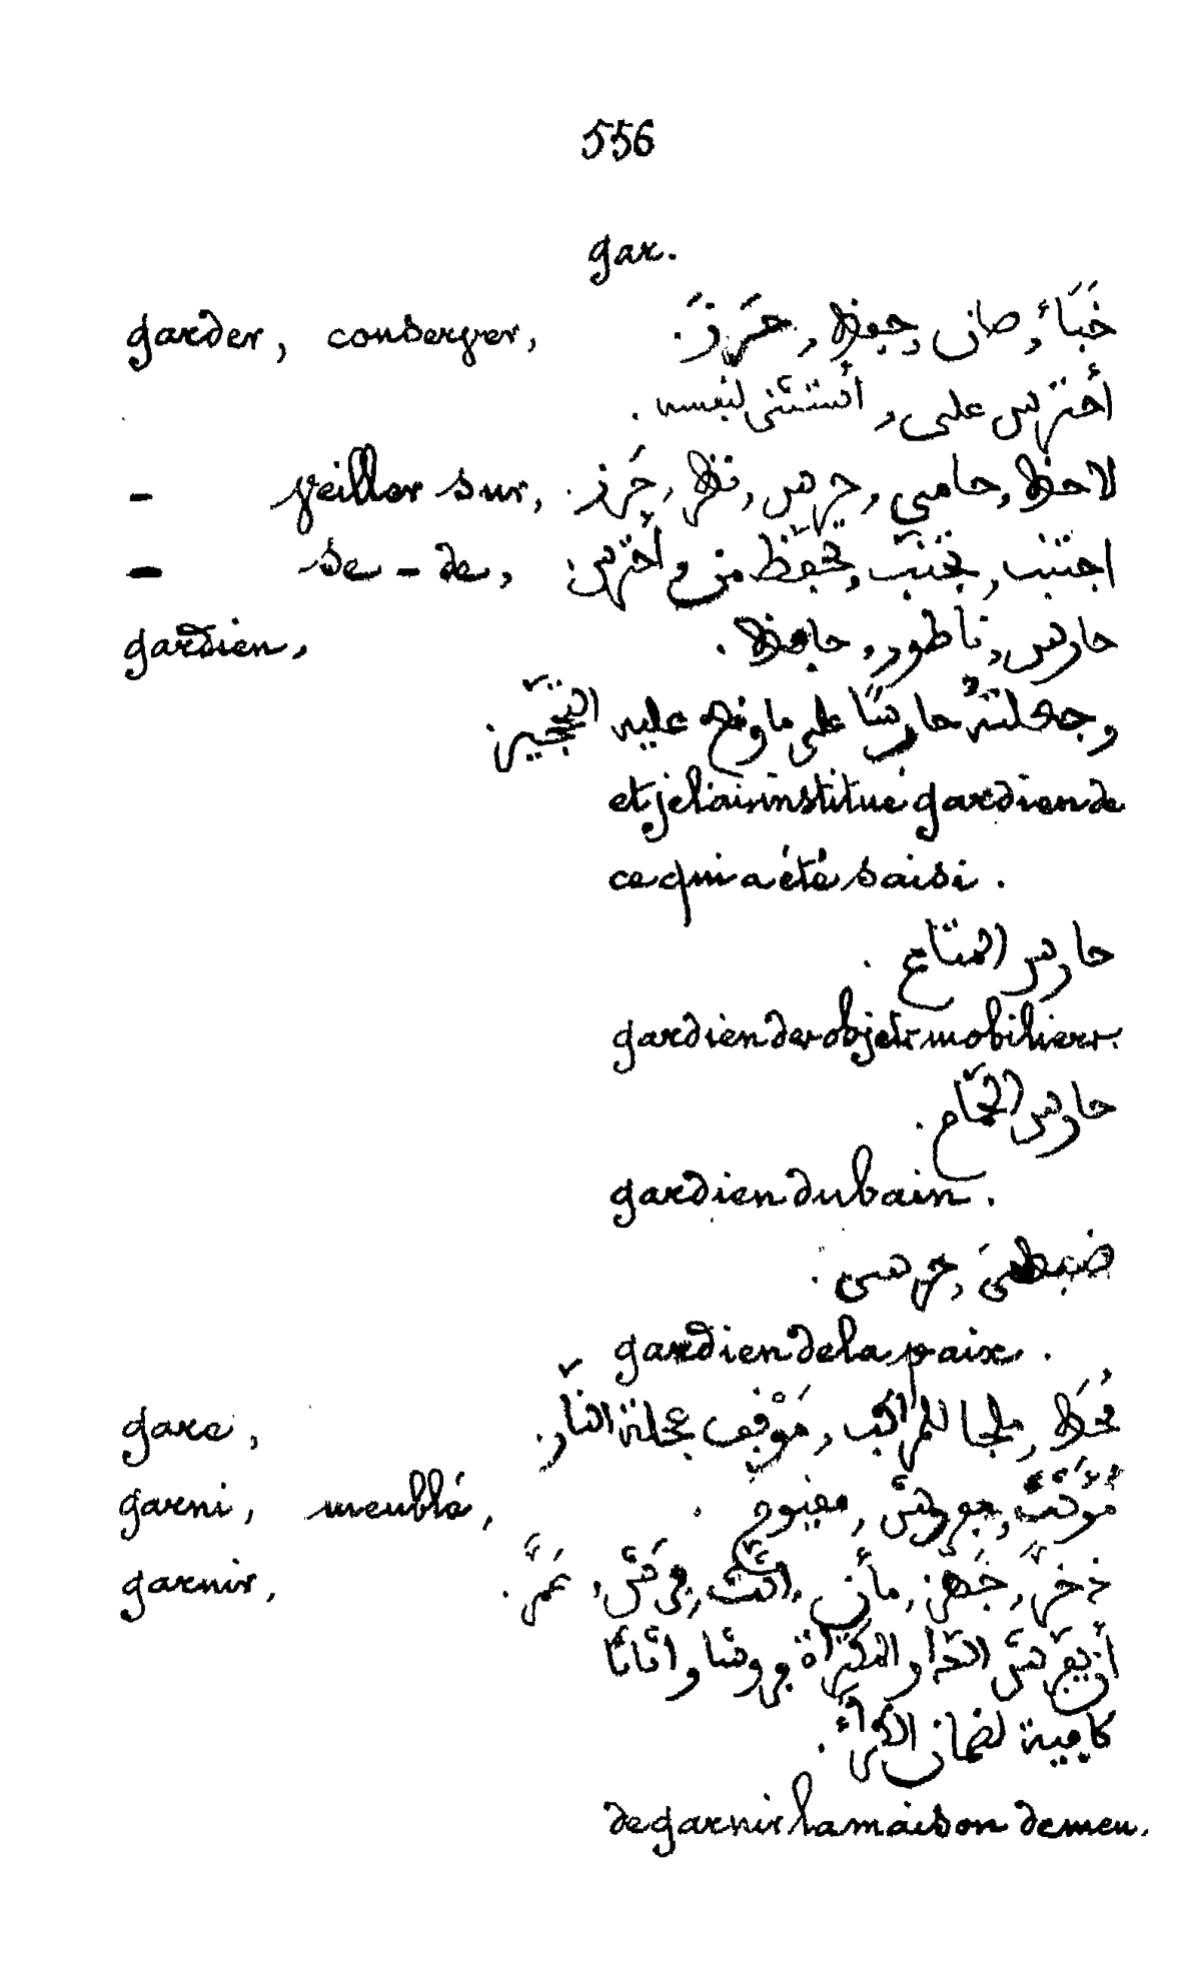 556
gar.
garder, conserver, خَبَاءَ, صان, حفظ, حَرَزَ.
أحترس على, أستثنى لنفسه.
- veiller sur, لاحظ, حامى, حرس, نظر, حَرز.
- se - de, اجتنب, تجنّب, تحفّظ من و أحترس.
gardien, حارس, ناطور, حافظ.
وجعلتهُ حارسًا على ما وقع عليه التّحجيز.
et je l'ai institué gardien de
ce qui a été saisi.
حارس المتاع.
gardien des objets mobiliers.
حارس الحمّام.
gardien du bain.
ضبطى, حرسى.
gardien de la paix.
gare, مُحَط, ملجا للمراكب, مَوْقِف عجلة النّار.
garni, meublé, مفروش,
garnir, ذخر, جَهّز, فرّش, عَمَّرَ.
أن يفرّش الدار و المكتراة فروشا و اثاثا
كافية لضمان الكراء.
de garnir la maison de meu.